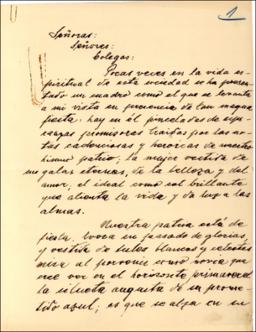 1
Señoras:
Señores:
Colegas:
Pocas veces en la vida es-
piritual de esta sociedad se ha presen-
tado un cuadro como el que se levanta
a mi vista en presencia de tan magna
fiesta: hay en él pinceladas de espe-
ranzas promisoras traídas por las no-
tas cadenciosas y heroicas de nuestro
himno patrio; la mujer vestida de
sus galas eternas, de la belleza y del
amor, el ideal como sol brillante
que alienta la vida y da luz a las
almas.
Nuestra patria está de
fiesta, evoca un pasado de glorias,
y vestida de tules blancos y celestes
mira al porvenir como novia que
cree ver en el horizonte primaveral
la silueta augusta de un prome-
tido azul; es que se alza en su